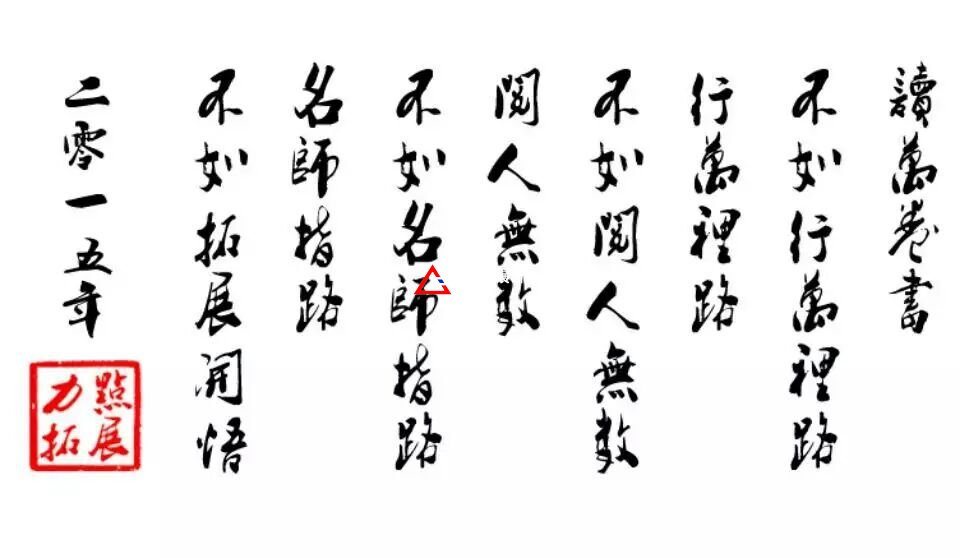 讀萬卷書
不如行萬裡路
行萬裡路
不如閱人無數
閱人無數
不如名師指路
名師指路
不如拓展開悟
二零一五年
點展
力拓